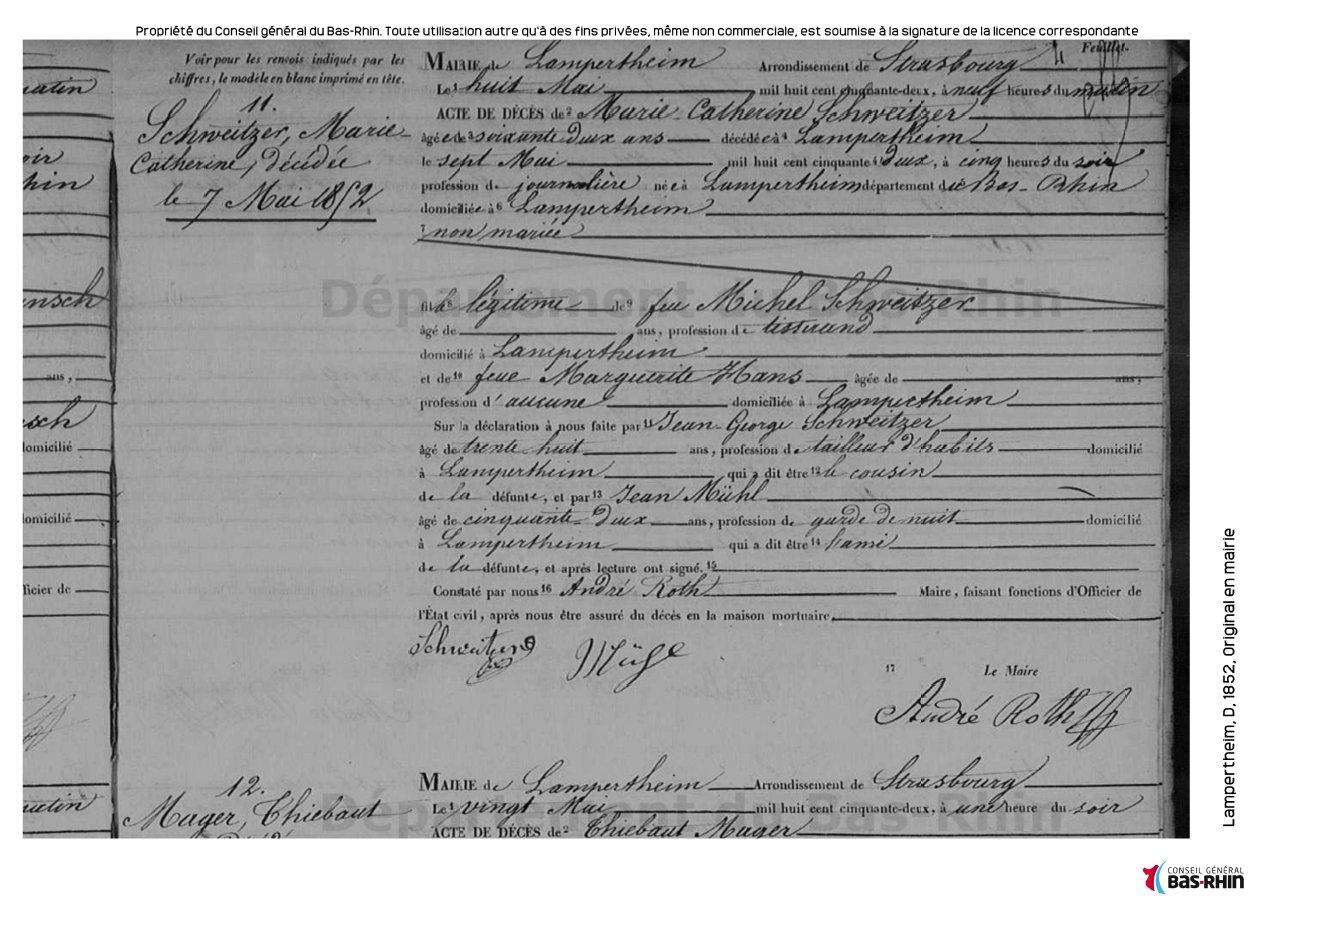 Propriété du Conseil général du Bas-Rhin. Toute utilisation autre qu'à des fins privées, même non commerciale, est soumise à la signature de la licence correspondante
Voir pour les renvois indiqués par les
chiffres, le modèle en blanc imprimé en tête.
11.
Schweitzer, Marie
Catherine, décédée
le 7 Mai 1852
4
Feuillet.
MAIRIE de Lampertheim Arrondissement de Strasbourg
Le 1 huit Mai mil huit cent cinquante-deux, à neuf heures du matin
ACTE DE DÉCÈS de 2 Marie Catherine Schweitzer
âgée de 3 soixante deux ans décédée à 4 Lampertheim
le sept Mai mil huit cent cinquante deux, à cinq heures du soir
profession de journalière née à Lampertheim département du Bas-Rhin
domiciliée à 6 Lampertheim
7 non mariée
fille 8 légitime de 9 feu Michel Schweitzer
âgé de ans, profession de tisserand
domicilié à Lampertheim
et de 10 feue Marguerite Hans âgée de ans,
profession d'aucune domiciliée à Lampertheim
Sur la déclaration à nous faite par 11 Jean-George Schweitzer
âgé de trente-huit ans, profession de tailleur d'habits domicilié
à Lampertheim qui a dit être 12 le cousin
de la défunte, et par 13 Jean Mühl
âgé de cinquante-deux ans, profession de garde de nuit domicilié
à Lampertheim qui a dit être 14 l'ami
de la défunte, et après lecture ont signé. 15
Constaté par nous 16 André Roth Maire, faisant fonctions d'Officier de
l'État civil, après nous être assuré du décès en la maison mortuaire.
Schweitzer
17 Le Maire
André Roth
12.
Mager, Thiebaut
MAIRIE de Lampertheim Arrondissement de Strasbourg
Le 1 vingt Mai mil huit cent cinquante-deux, à une heure du soir
ACTE DE DÉCÈS de 2 Thiebaut Mager
matin
soir
Rhin
ans,
domicilié
domicilié
ficier de
matin
Département du Bas-Rhin
Département du Bas-Rhin
Lampertheim, D, 1852, Original en mairie
CONSEIL GÉNÉRAL
BAS-RHIN